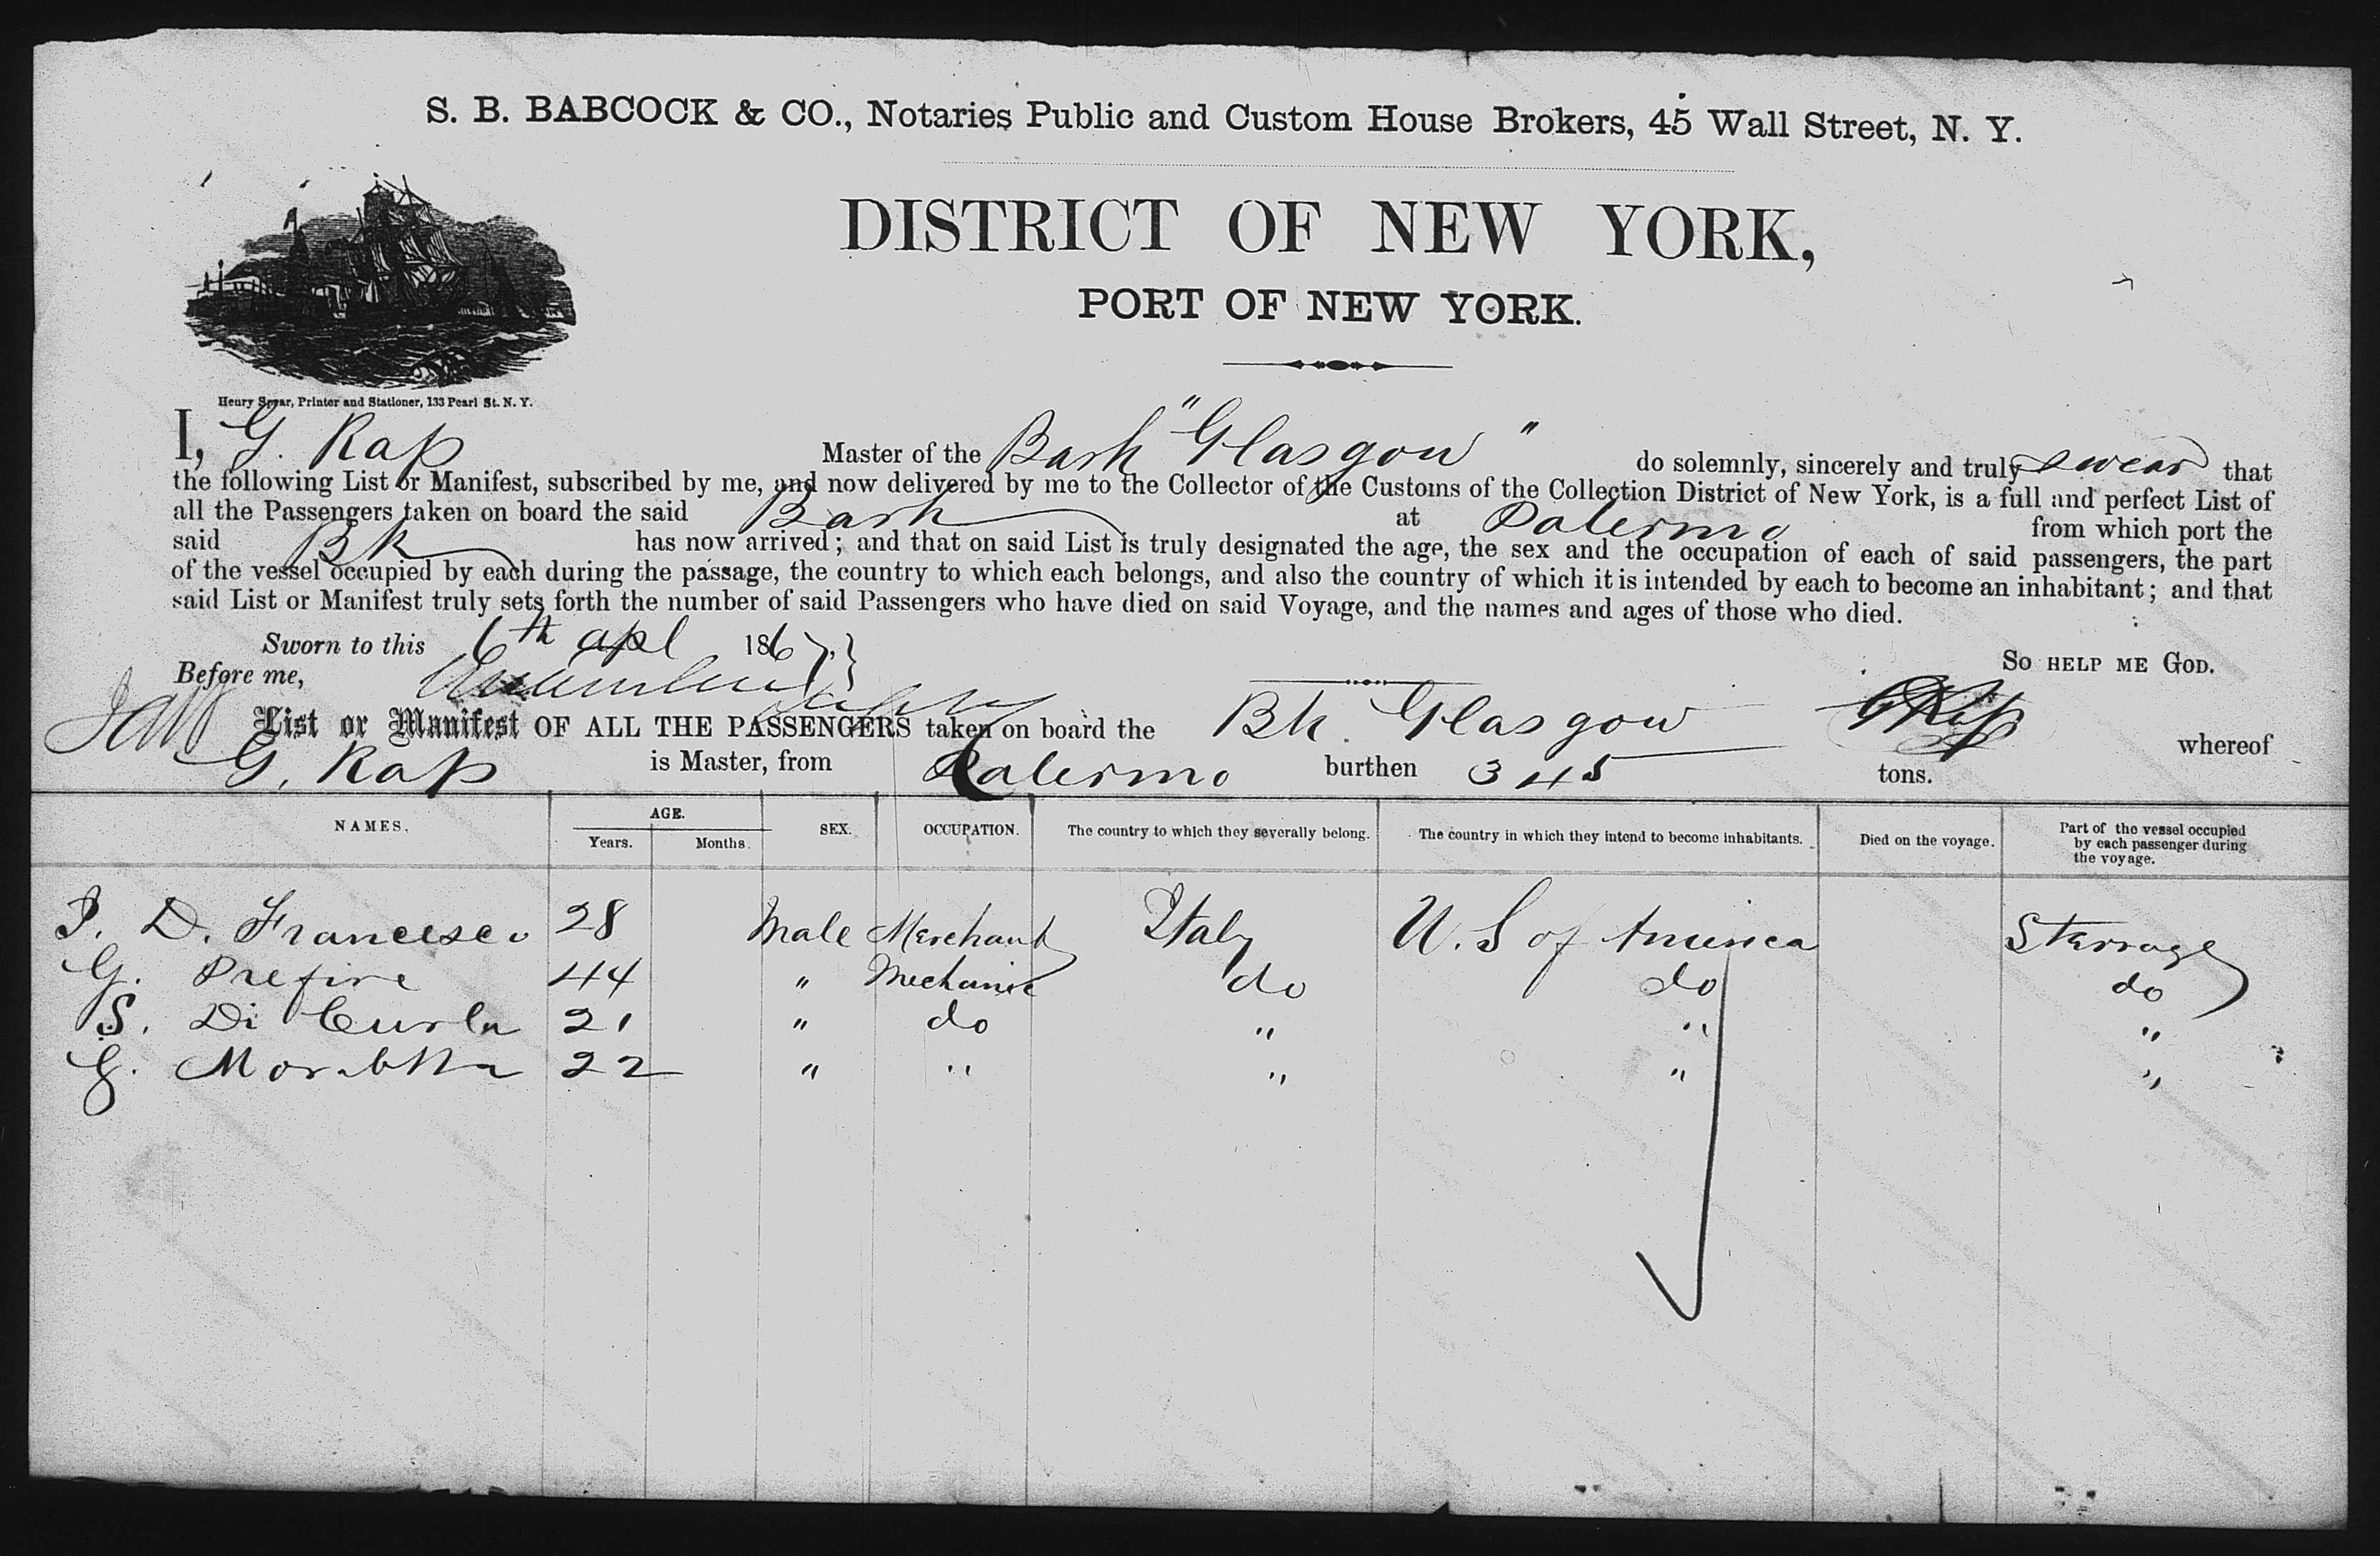 S. B. BABCOCK & CO., Notaries Public and Custom House Brokers, 45 Wall Street, N. Y.
DISTRICT OF NEW YORK,
PORT OF NEW YORK.
Henry Spear, Printer and Stationer, 133 Pearl St. N. Y.
I, G. Rap Master of the Bark "Glasgow" do solemnly, sincerely and truly swear that
the following List or Manifest, subscribed by me, and now delivered by me to the Collector of the Customs of the Collection District of New York, is a full and perfect List of
all the Passengers taken on board the said Bark at Palermo from which port the
said Bk has now arrived; and that on said List is truly designated the age, the sex and the occupation of each of said passengers, the part
of the vessel occupied by each during the passage, the country to which each belongs, and also the country of which it is intended by each to become an inhabitant; and that
said List or Manifest truly sets forth the number of said Passengers who have died on said Voyage, and the names and ages of those who died.
Sworn to this 6th apl 1867,
So HELP ME GOD.
Before me,
List or Manifest OF ALL THE PASSENGERS taken on board the Bk. Glasgow GRap whereof
G. Rap is Master, from Palermo burthen 345 tons.
NAMES. AGE. Years. Months. SEX. OCCUPATION. The country to which they severally belong. The country in which they intend to become inhabitants. Died on the voyage. Part of the vessel occupied by each passenger during the voyage.
D. Francesco 28 Male Merchant Italy U. S of America Sterrage
G. Prefire 44 " Mechanic do do do
S. Di 21 " do " " "
G. 22 " " " " "